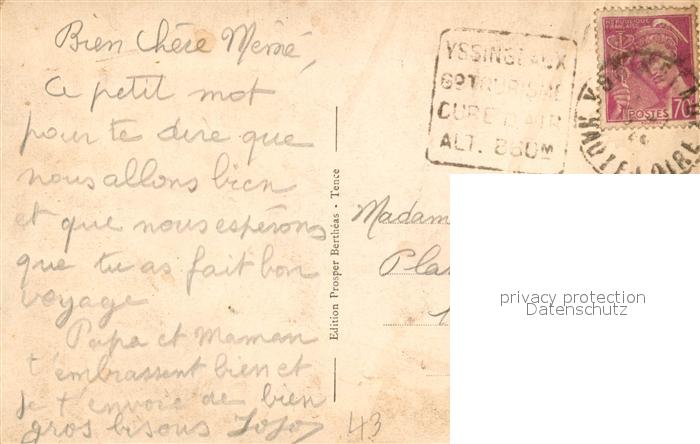 Bien Chère Mémé,
Ce petit mot
pour te dire que
nous allons bien
et que nous espérons
que tu as fait bon
voyage
Papa et Maman
t'embrassent bien et
je t'envoie de bien
gros bisous Jojo
43
Edition Prosper Berthéas - Tence
YSSINGEAUX
Gd TOURISME
CURE D'AIR
ALT. 860M
REPUBLIQUE FRANÇAISE
POSTES 70c
HAUTE LOIRE
Madam
Pla
privacy protection
Datenschutz